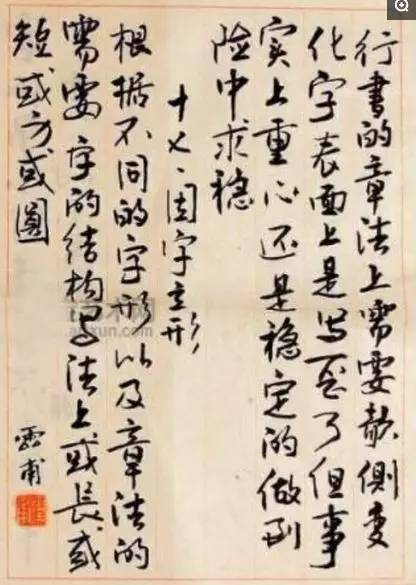 行書的章法上需要欹側变
化字表面上是写歪了但事
实上重心还是穩定的做到
险中求穩
十七、因字立形
根据不同的字形以及章法的
需要字的结构写法上或長或
短或方或圓
雲甫